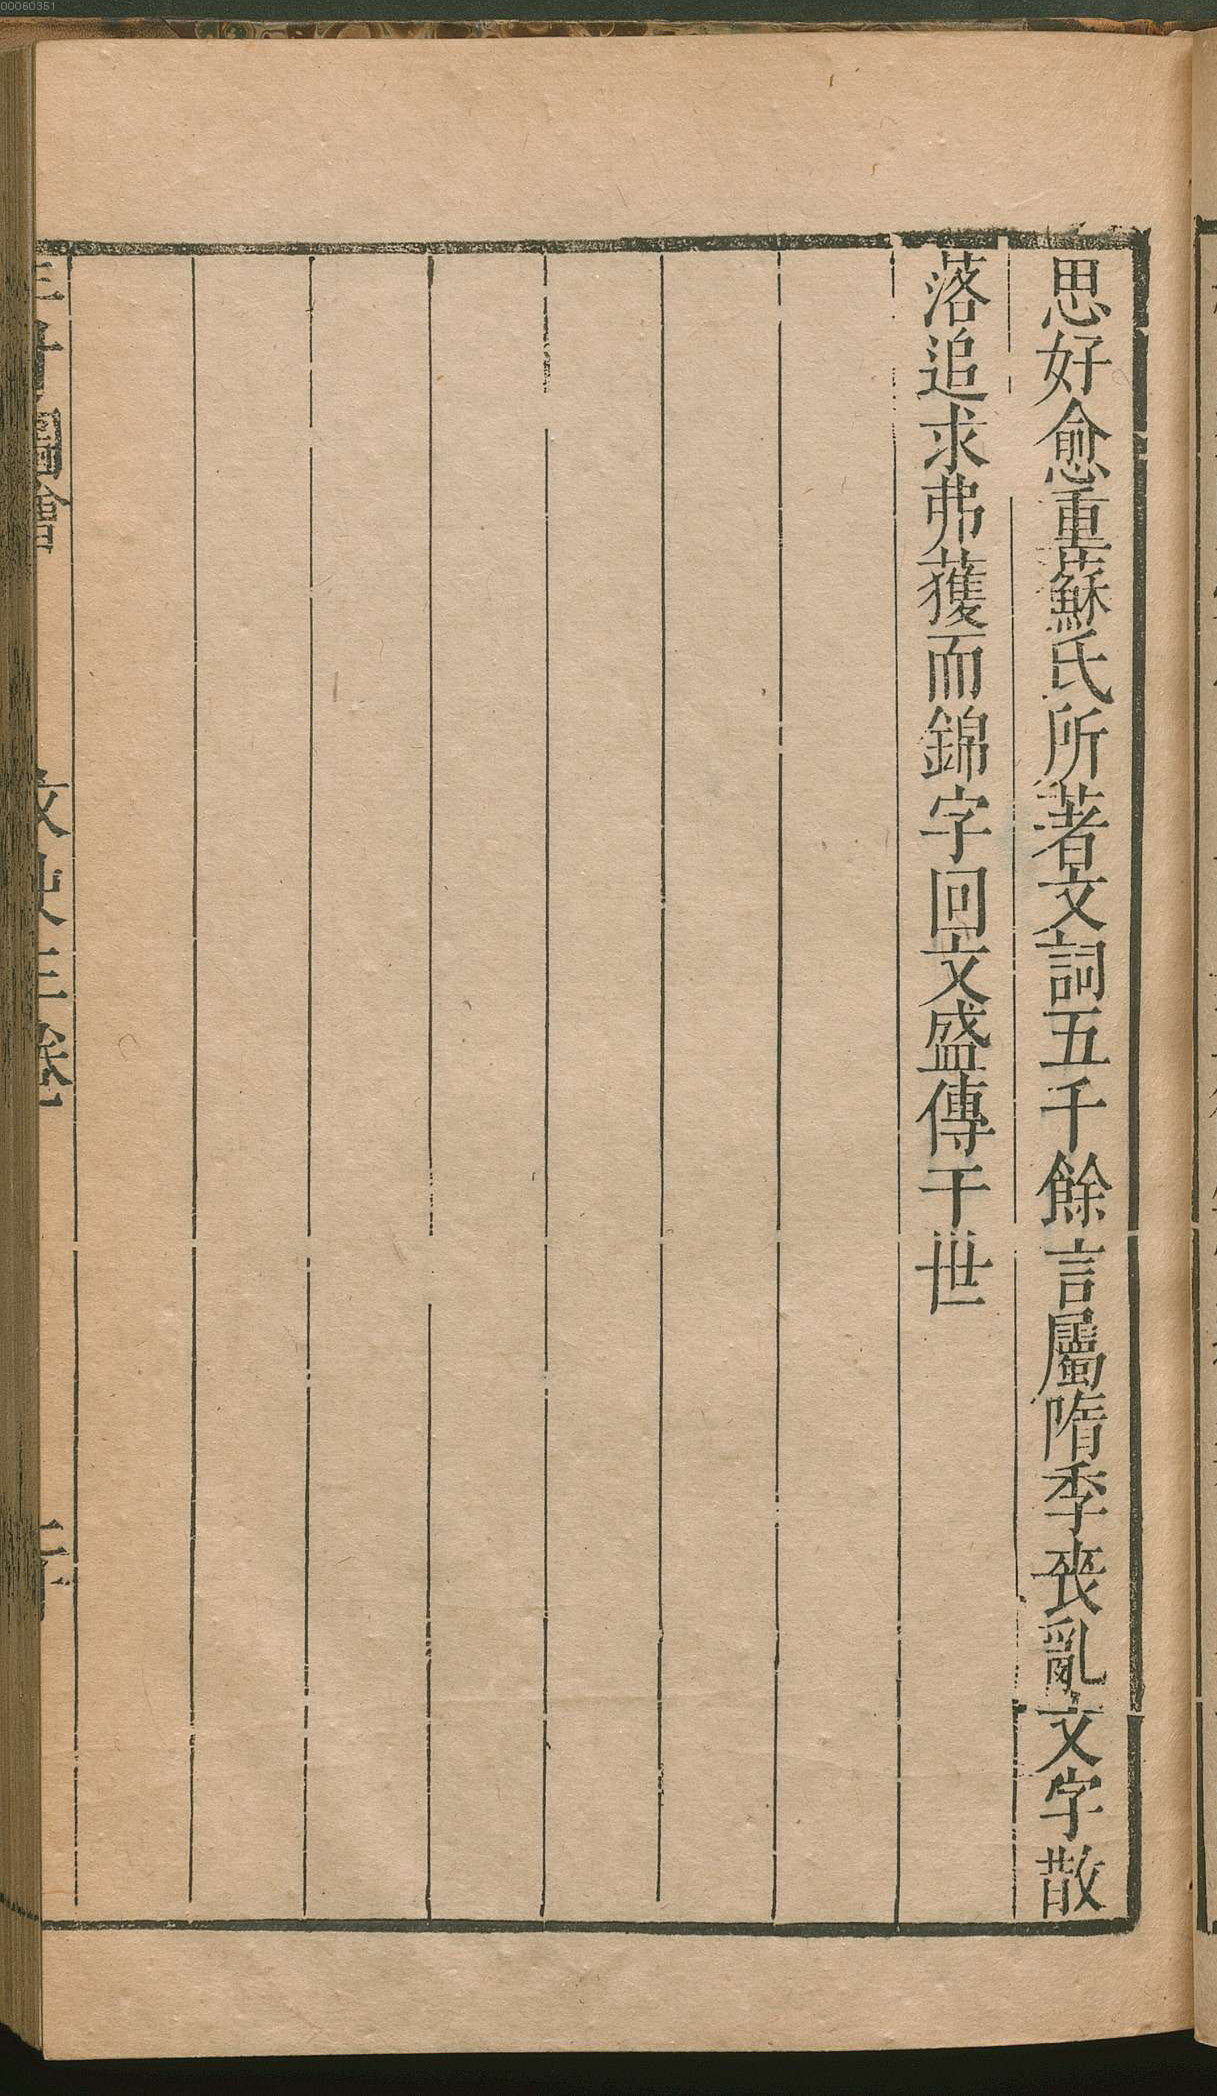 思好愈重蘇氏所著文詞五千餘言屬隋季丧亂文字散
落追求弗獲而錦字回文盛傳于世
三才圖會
文史三卷
00060351